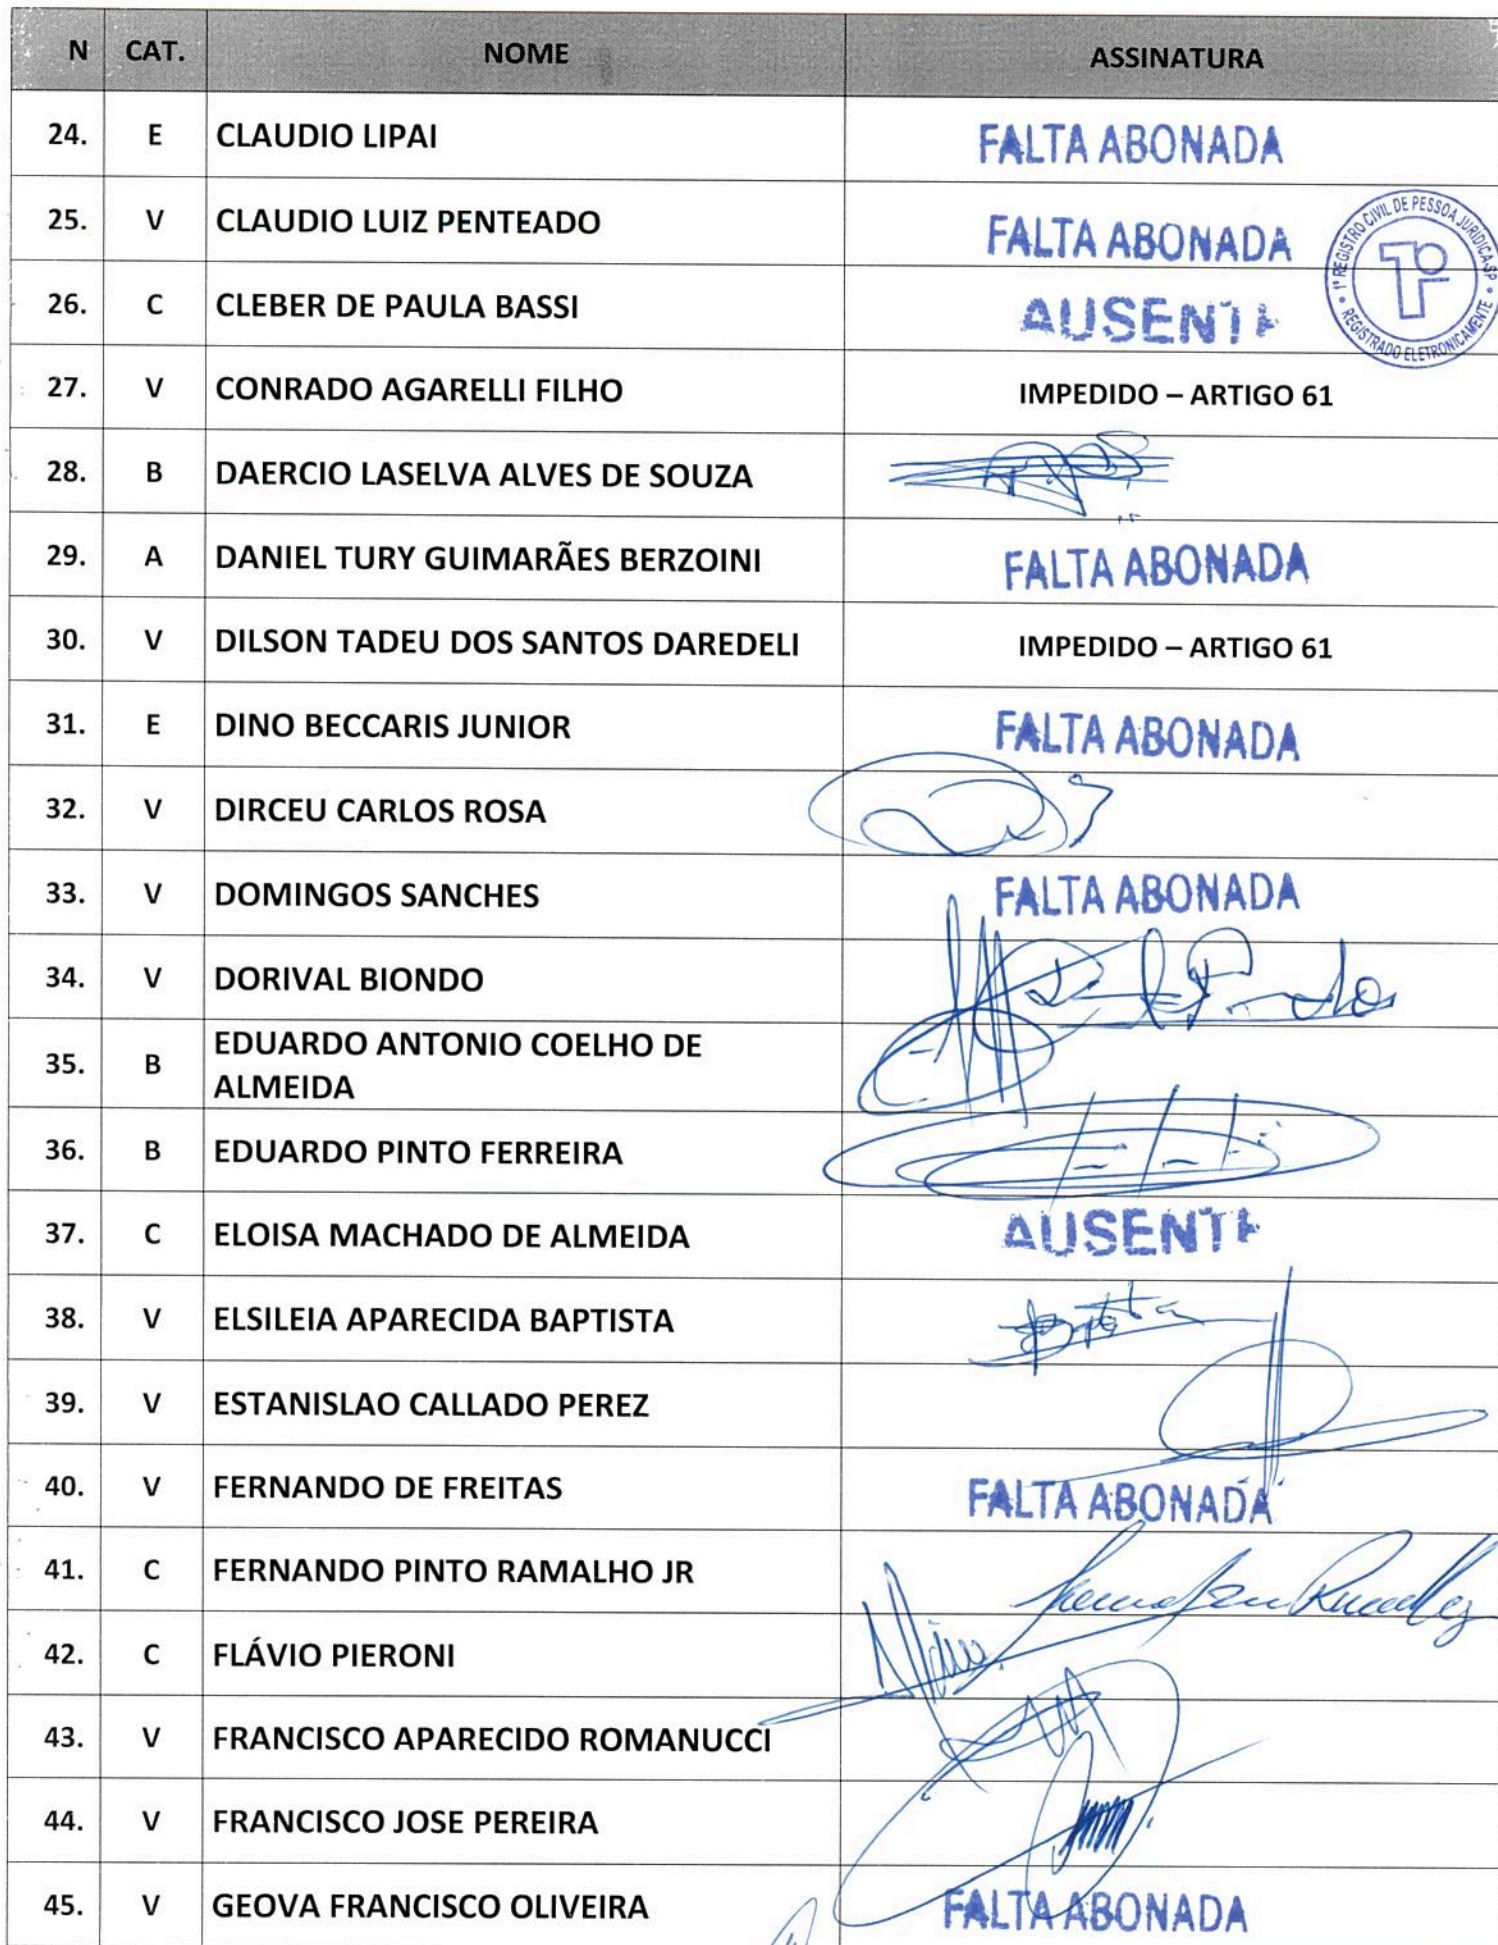 N CAT. NOME ASSINATURA
24. E CLAUDIO LIPAI FALTA ABONADA
25. V CLAUDIO LUIZ PENTEADO FALTA ABONADA
1º REGISTRO CIVIL DE PESSOA JURIDICA-SP • REGISTRADO ELETRONICAMENTE •
1º
26. C CLEBER DE PAULA BASSI AUSENTE
27. V CONRADO AGARELLI FILHO IMPEDIDO – ARTIGO 61
28. B DAERCIO LASELVA ALVES DE SOUZA
29. A DANIEL TURY GUIMARÃES BERZOINI FALTA ABONADA
30. V DILSON TADEU DOS SANTOS DAREDELI IMPEDIDO – ARTIGO 61
31. E DINO BECCARIS JUNIOR FALTA ABONADA
32. V DIRCEU CARLOS ROSA
33. V DOMINGOS SANCHES FALTA ABONADA
34. V DORIVAL BIONDO
35. B EDUARDO ANTONIO COELHO DE
ALMEIDA
36. B EDUARDO PINTO FERREIRA
37. C ELOISA MACHADO DE ALMEIDA AUSENTE
38. V ELSILEIA APARECIDA BAPTISTA
39. V ESTANISLAO CALLADO PEREZ
40. V FERNANDO DE FREITAS FALTA ABONADA
41. C FERNANDO PINTO RAMALHO JR
42. C FLÁVIO PIERONI
43. V FRANCISCO APARECIDO ROMANUCCI
44. V FRANCISCO JOSE PEREIRA
45. V GEOVA FRANCISCO OLIVEIRA FALTA ABONADA